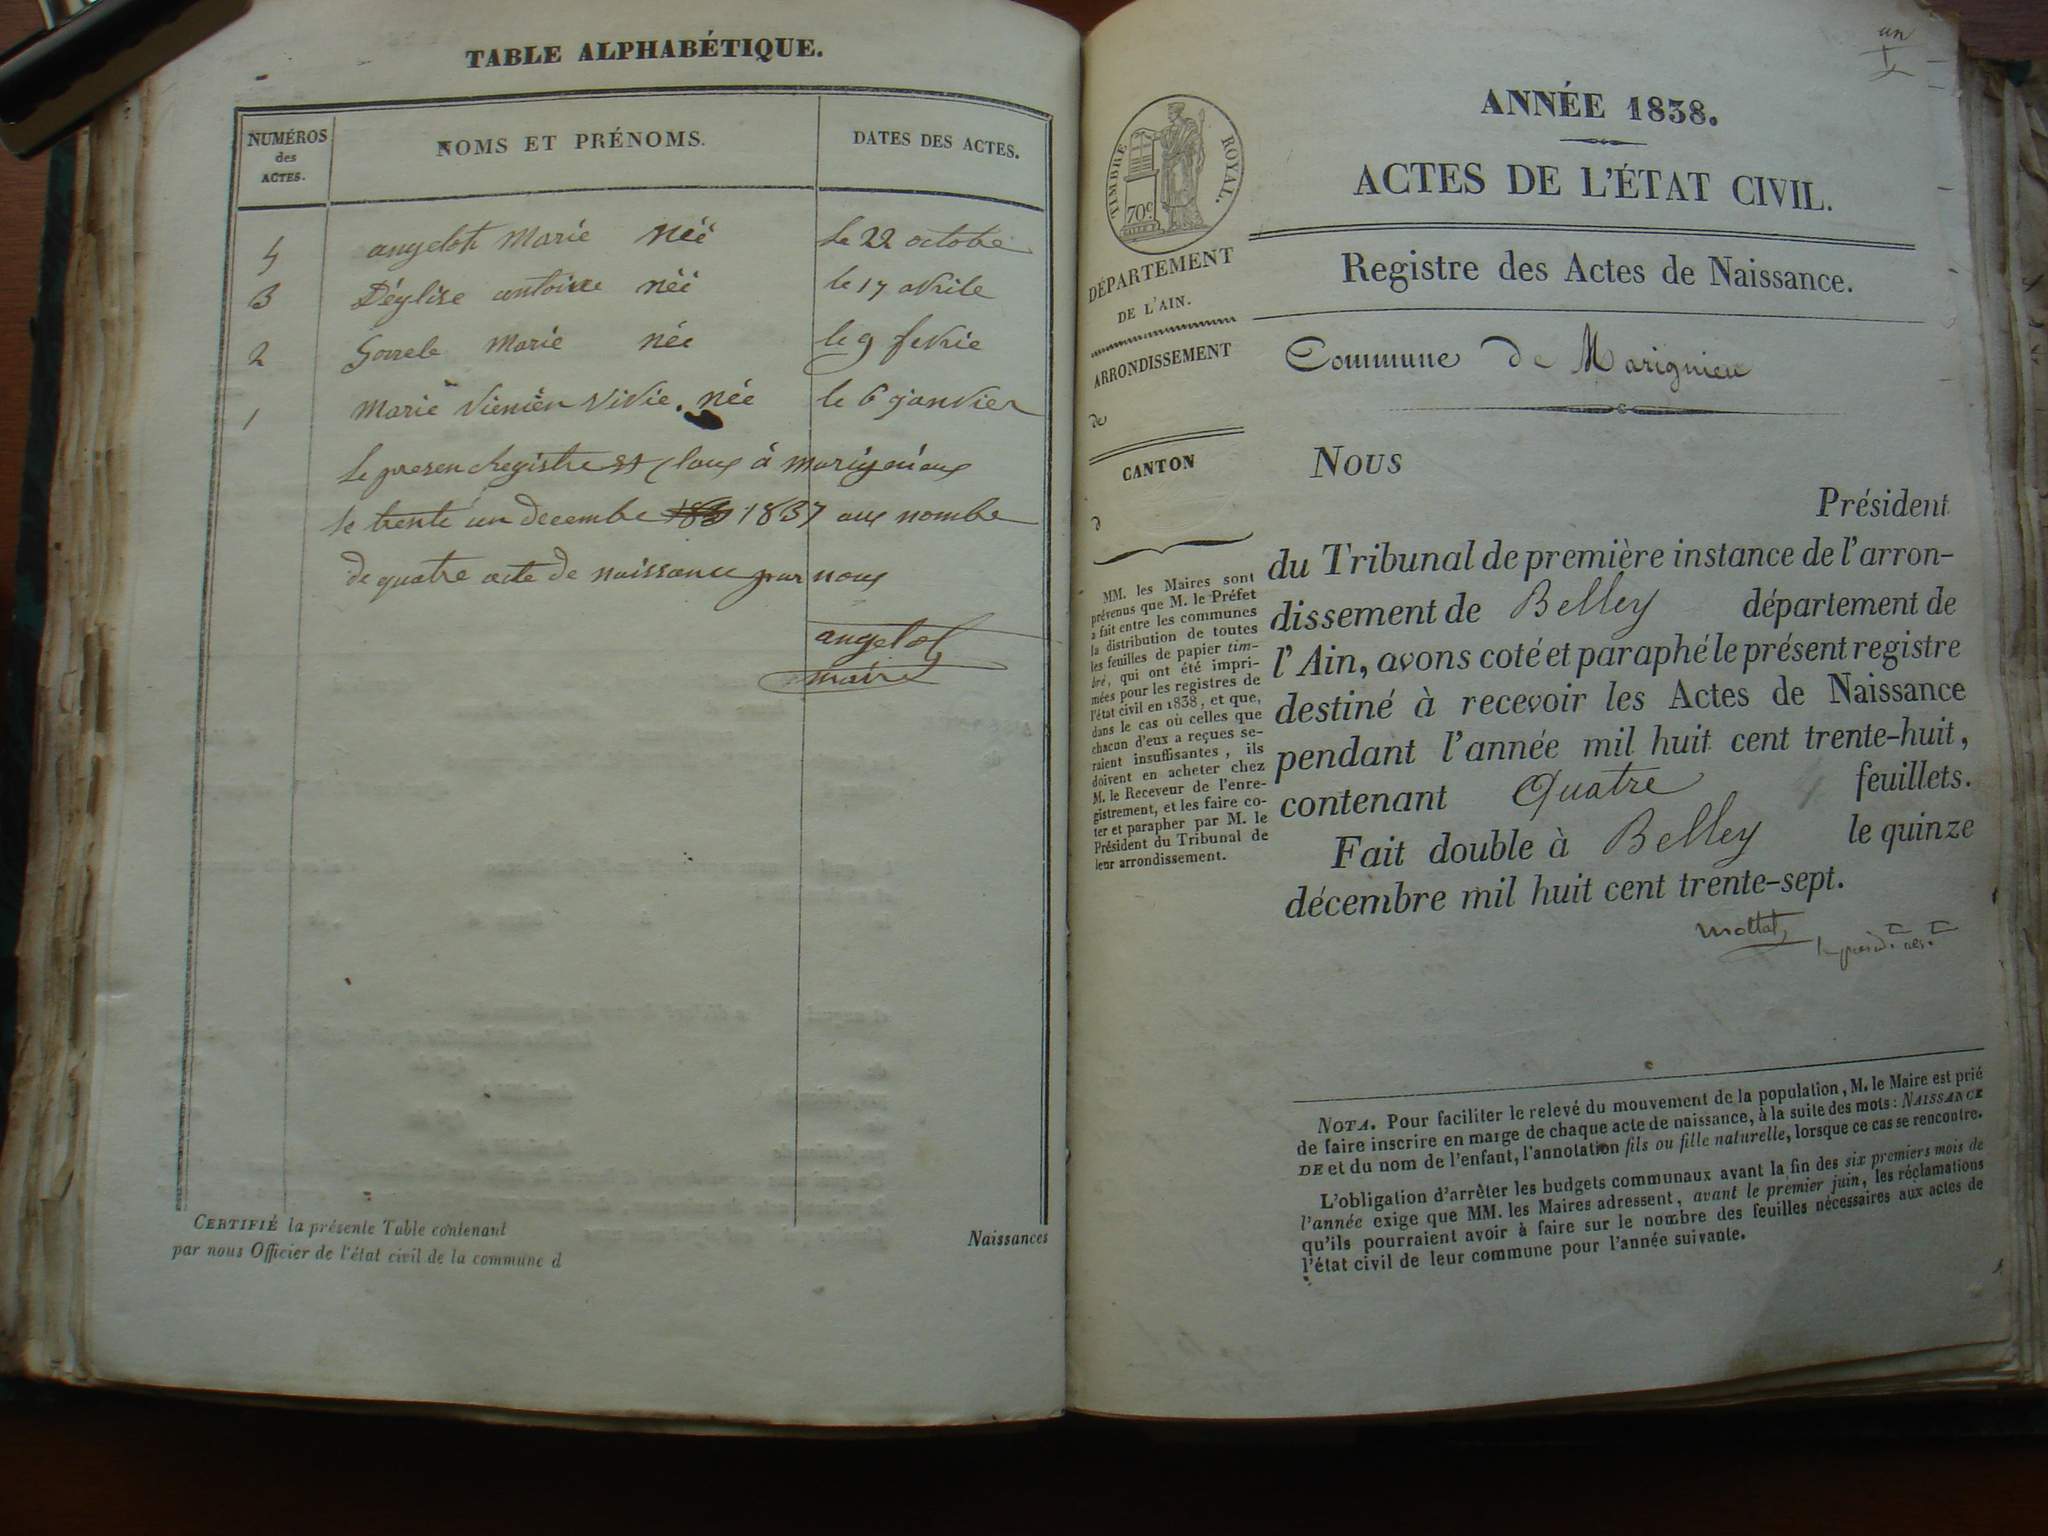 TABLE ALPHABÉTIQUE.
NUMÉROS des ACTES. NOMS ET PRÉNOMS. DATES DES ACTES.
4 angelot Marie néé le 22 octobre
3 Déglise antoine néé le 17 avrile
2 Gorrele Marie née le 9 fevrie
1 Marie Vivie. née le 6 janvier
le presen Registre et clous á marignieux
le trente un decembre 1837 aux nombre
de quatre acte de naissance par nous
angelot
maire
CERTIFIÉ la présente Table contenant
Naissances
par nous Officier de l'état civil de la commune d
un
TIMBRE ROYAL.
70c
DÉPARTEMENT
DE L'AIN.
ARRONDISSEMENT
de
CANTON
d
MM. les Maires sont
prévenus que M. le Préfet
a fait entre les communes
la distribution de toutes
les feuilles de papier tim-
bré, qui ont été impri-
mées pour les registres de
l'état civil en 1838, et que,
dans le cas où celles que
chacun d'eux a reçues se-
raient insuffisantes, ils
doivent en acheter chez
M. le Receveur de l'enre-
gistrement, et les faire co-
ter et parapher par M. le
Président du Tribunal de
leur arrondissement.
ANNÉE 1838.
ACTES DE L'ÉTAT CIVIL.
Registre des Actes de Naissance.
Commune de Marignieu
NOUS
Président
du Tribunal de première instance de l'arron-
dissement de Belley département de
l'Ain, avons coté et paraphé le présent registre
destiné à recevoir les Actes de Naissance
pendant l'année mil huit cent trente-huit,
contenant Quatre feuillets.
Fait double à Belley le quinze
décembre mil huit cent trente-sept.
Mottat
NOTA. Pour faciliter le relevé du mouvement de la population, M. le Maire est prié
de faire inscrire en marge de chaque acte de naissance, à la suite des mots: NAISSANCE
DE et du nom de l'enfant, l'annotation fils ou fille naturelle, lorsque ce cas se rencontre.
L'obligation d'arrêter les budgets communaux avant la fin des six premiers mois de
l'année exige que MM. les Maires adressent, avant le premier juin, les réclamations
qu'ils pourraient avoir à faire sur le nombre des feuilles nécessaires aux actes de
l'état civil de leur commune pour l'année suivante.